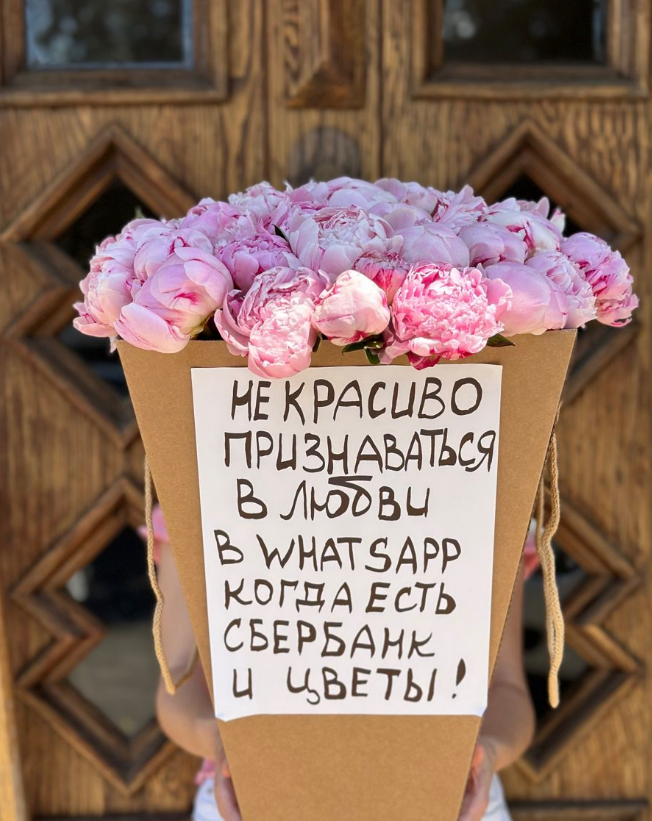 НЕ КРАСИВО
ПРИЗНАВАТЬСЯ
В ЛЮБВИ
В WHATSAPP
КОГДА ЕСТЬ
СБЕРБАНК
И ЦВЕТЫ!